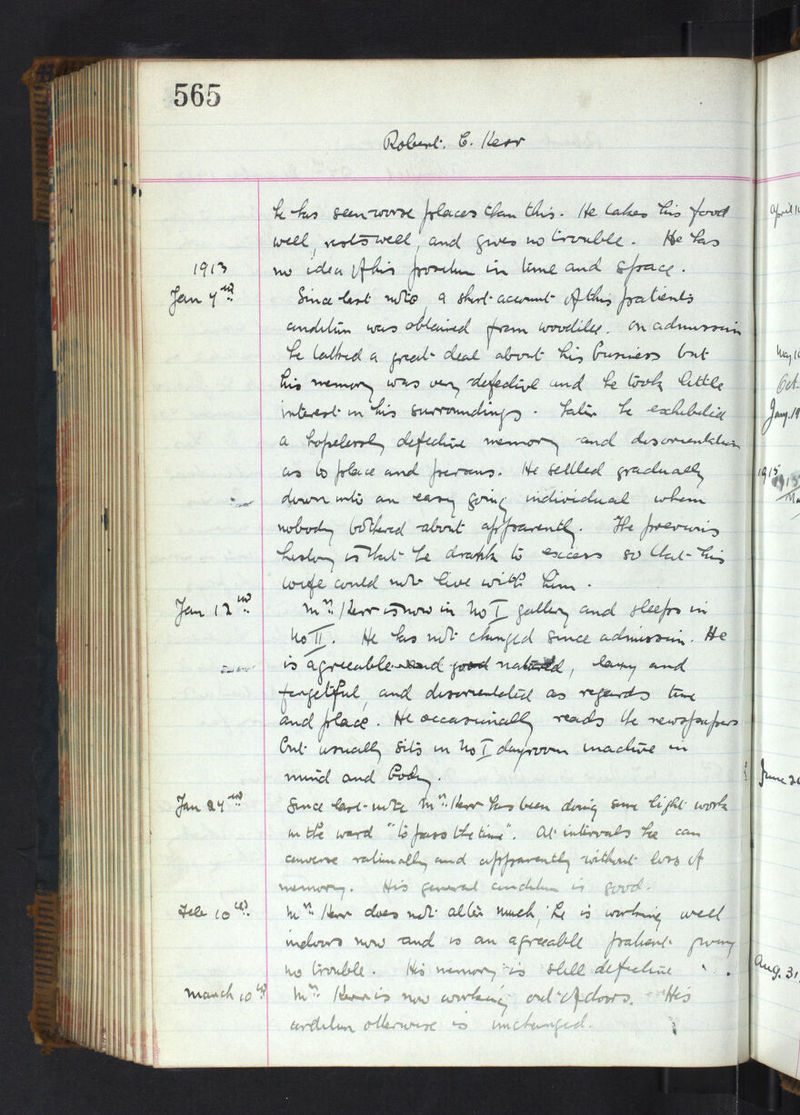 565
Robert. C. Kerr
he has seen worse places than this. He takes his food
well, rests well, and gives no trouble. He has
1913 no idea of his position in time and space.
Jan 7th Since last note, a short account of this patients
condition was obtained from Woodilee. On admission
he talked a great deal about his business but
his memory was very defective and he took little
interest in his surroundings. Later he exhibited
a hopelessly defective memory and disorientation
as to place and persons. He settled gradually
down into an easy going individual whom
nobody bothered about apparently. The previous
history is that he drank to excess so that his
wife could not live with him.
Jan 12th Mr. Kerr is now in No I gallery and sleeps in
No II. He has not changed since admission. He
is agreeable and good natured, lazy and
forgetful, and disorientated as regards time
and place. He occasionally reads the newspapers
but usually sits in No I dayroom inactive in
mind and body.
Jan 24th Since last note Mr. Kerr has been doing some light work
in the ward "to pass the time". At intervals he can
converse rationally and apparently without loss of
memory. His general condition is good.
Feb 10th Mr. Kerr does not alter much, he is working well
indoors now and is an agreeable patient giving
no trouble. His memory is still defective.
March 10th Mr. Kerr is now working out of doors. His
condition otherwise is unchanged.
April
May
Oct
Jany.
1915
1915
June
Aug. 31